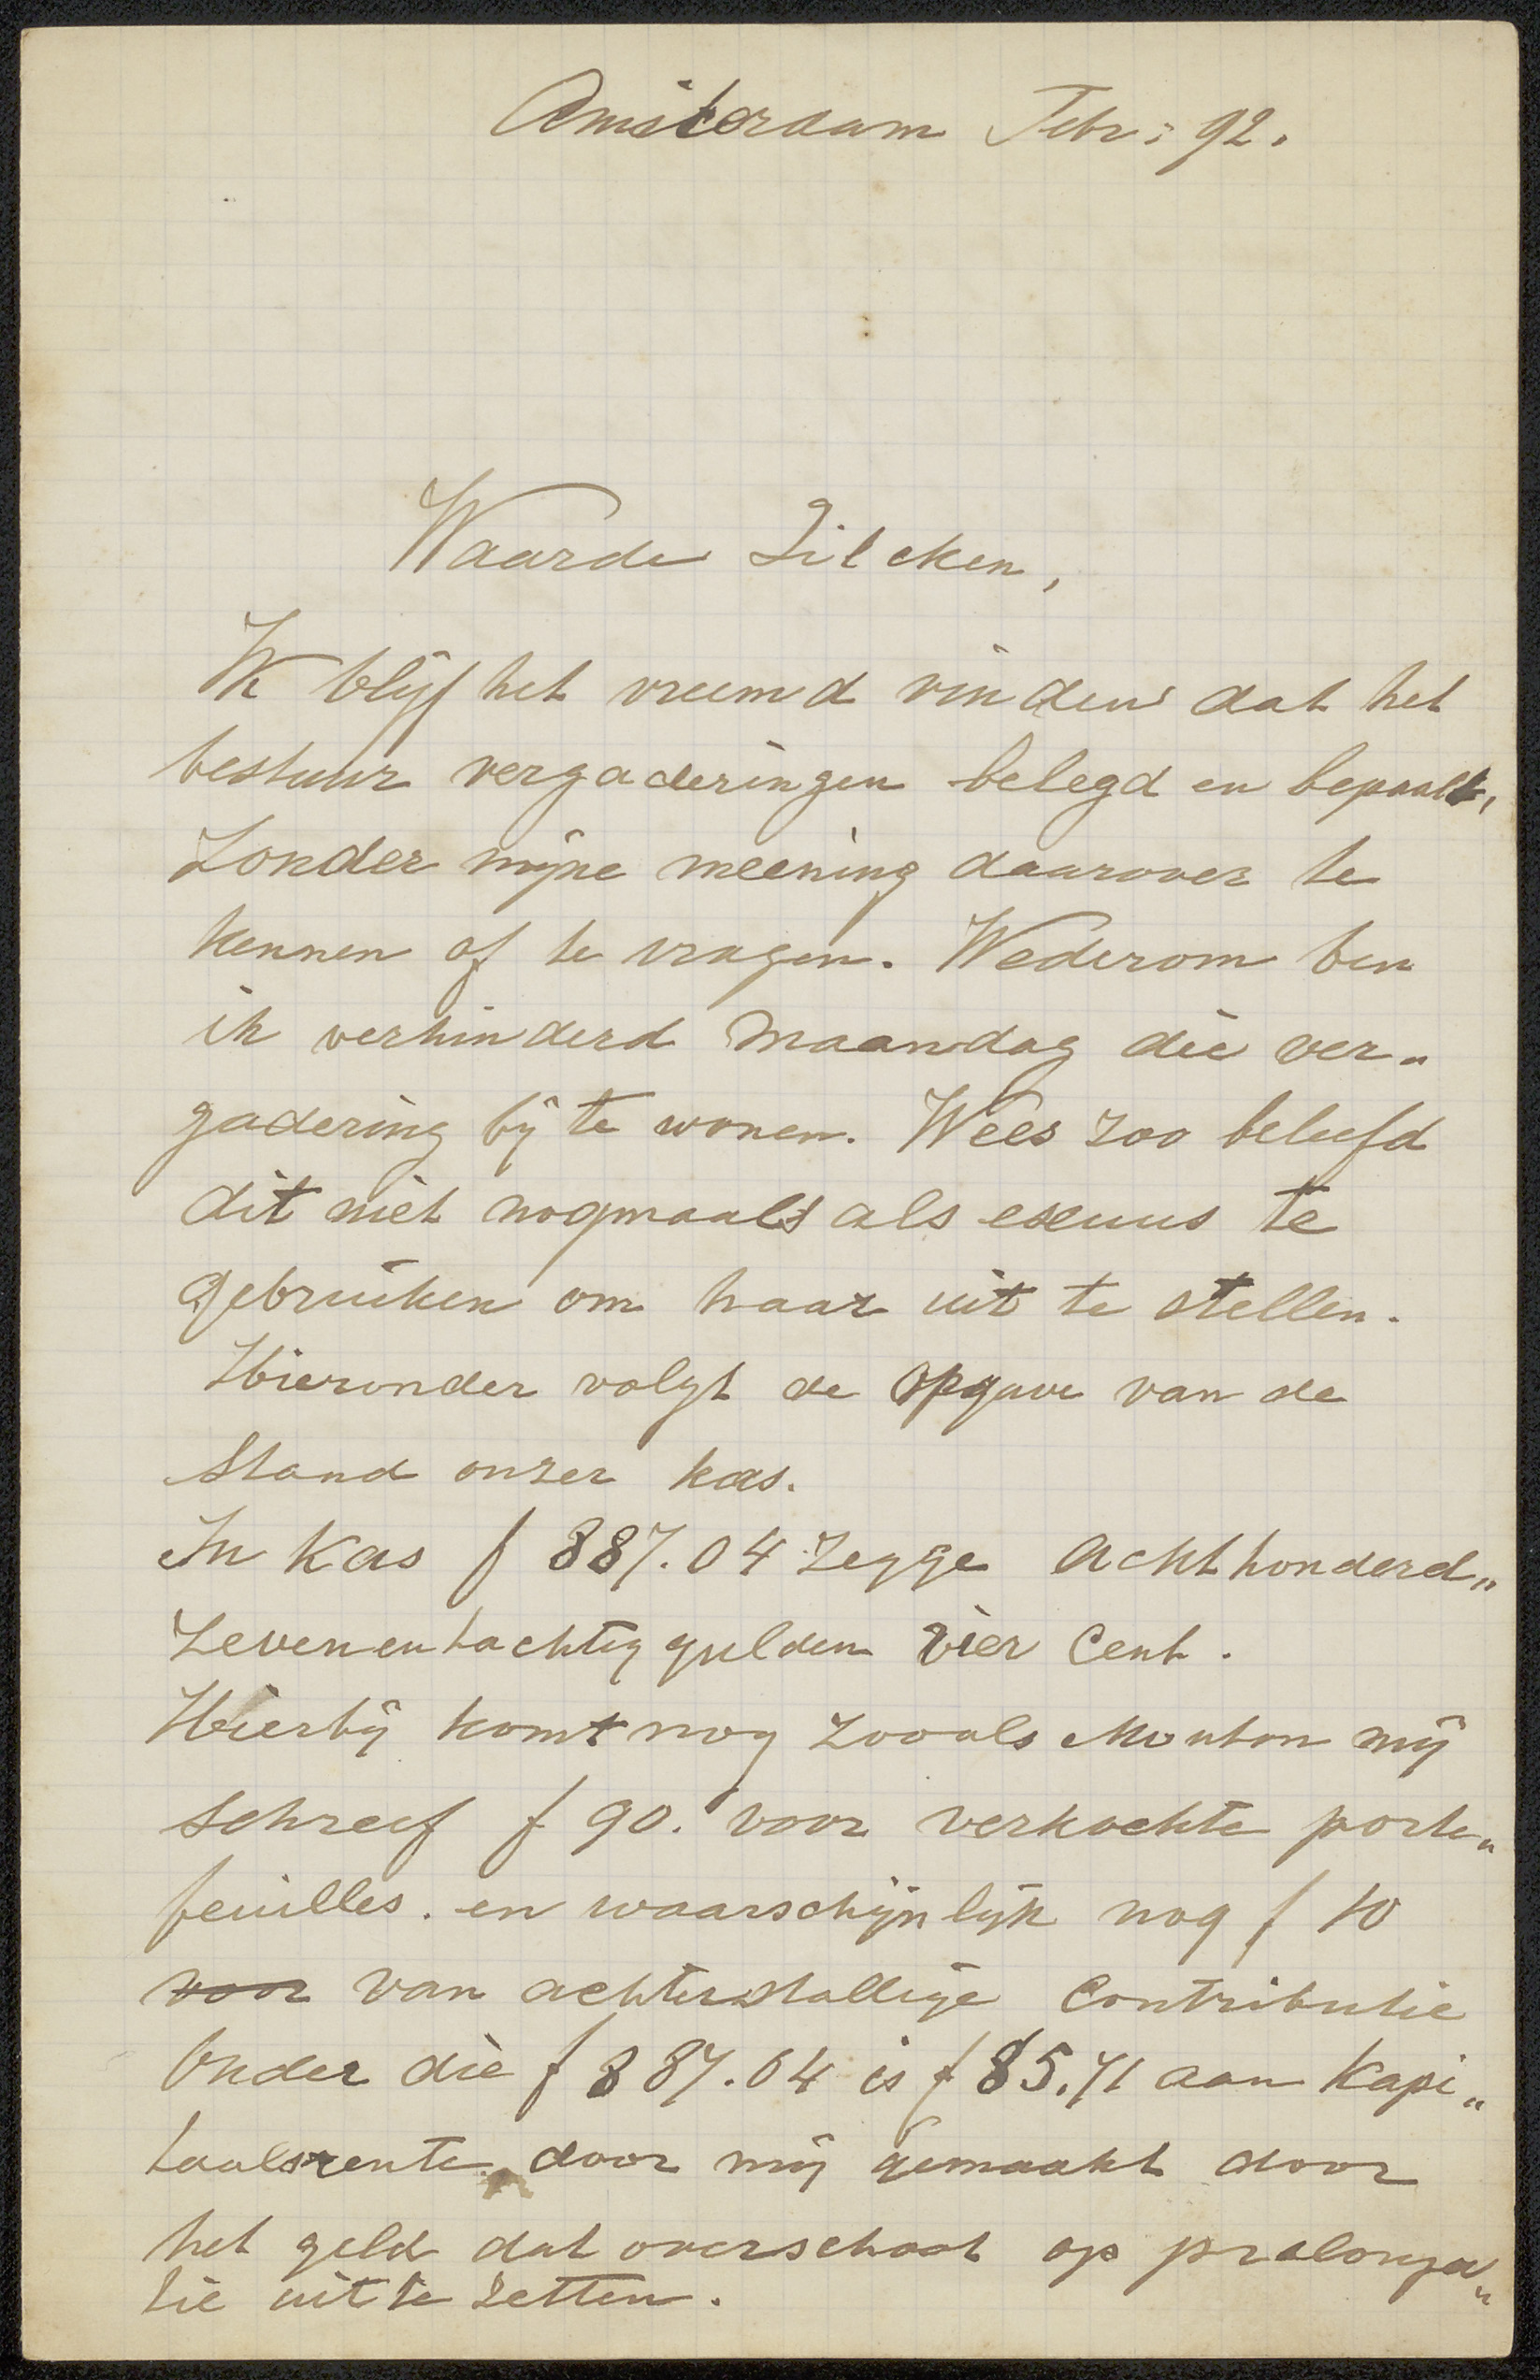 Amsterdam Febr: 92.
Waarde Zilcken,
Ik blijf het vreemd vinden dat het
bestuur vergaderingen belegd en bepaalt,
zonder mijne meening daarover te
kennen of te vragen. Wederom ben
ik verhinderd Maandag die ver„
gadering bij te wonen. Wees zoo beleefd
dit niet nogmaals als excuus te
gebruiken om haar uit te stellen.
Hieronder volgt de opgave van de
stand onzer kas.
In Kas f 887.04 zegge achthonderd„
zevenentachtig gulden vier Cent.
Hierbij komt nog zooals Mouton mij
schreef f 90. voor verkochte porte„
feuilles. en waarschijnlijk nog f 10
voor van achterstallige Contributie
Onder die f 887.04 is f 85.71 aan Kapi„
taalsrente door mij gemaakt door
het geld dat overschoot op prolonga„
tie uit te zetten.